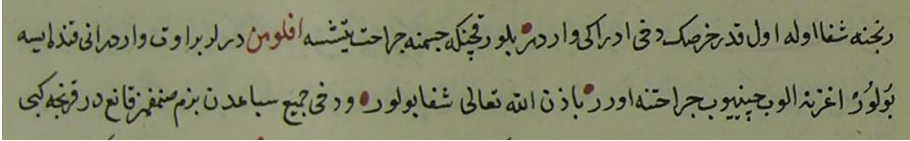 رنجنه شفا اوله اول قدر خرصك دخی ادراكی واردر بلور قچنكه جسمنه جراحت یتشسه افلومن درلر بر اوت واردر انی قنده ایسه
بولور اغزینه الوب چینیوب جراحتنه اورر باذن الله تعالی شفا بولور ودخی جمیع سباعدن بزم صنفمز قانع در قرنجه كبی